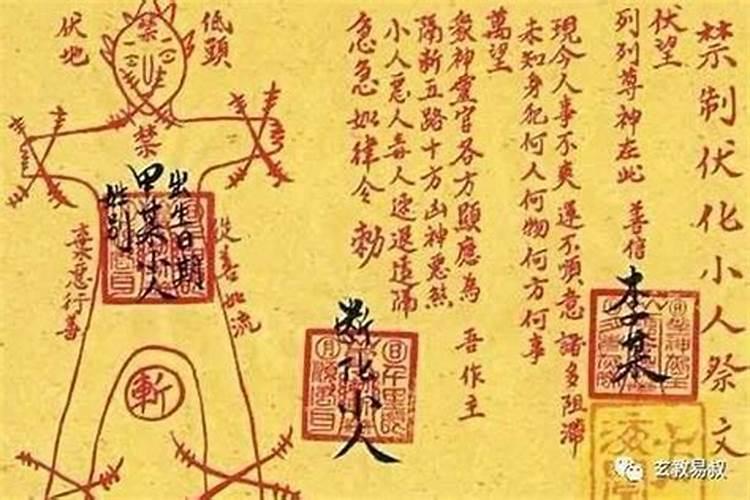 禁制伏化小人祭文
伏望
列列尊神在此 善信 李某
現今人事不爽運不順意諸多阻滯
未知身犯何人何物何方何事
萬望
眾神靈官各方顯應為 吾作主
隔斷五路十方凶神惡煞
小人惡人毒人速退遠隔
急急如律令勅
斷化小人
低頭
禁
伏地
禁
出生日期
甲某小人
姓别
從善如流
棄惡行善
斬
玄教易叔